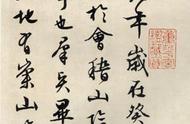 年歲在癸
於會稽山陰
事也羣賢畢
地有崇山